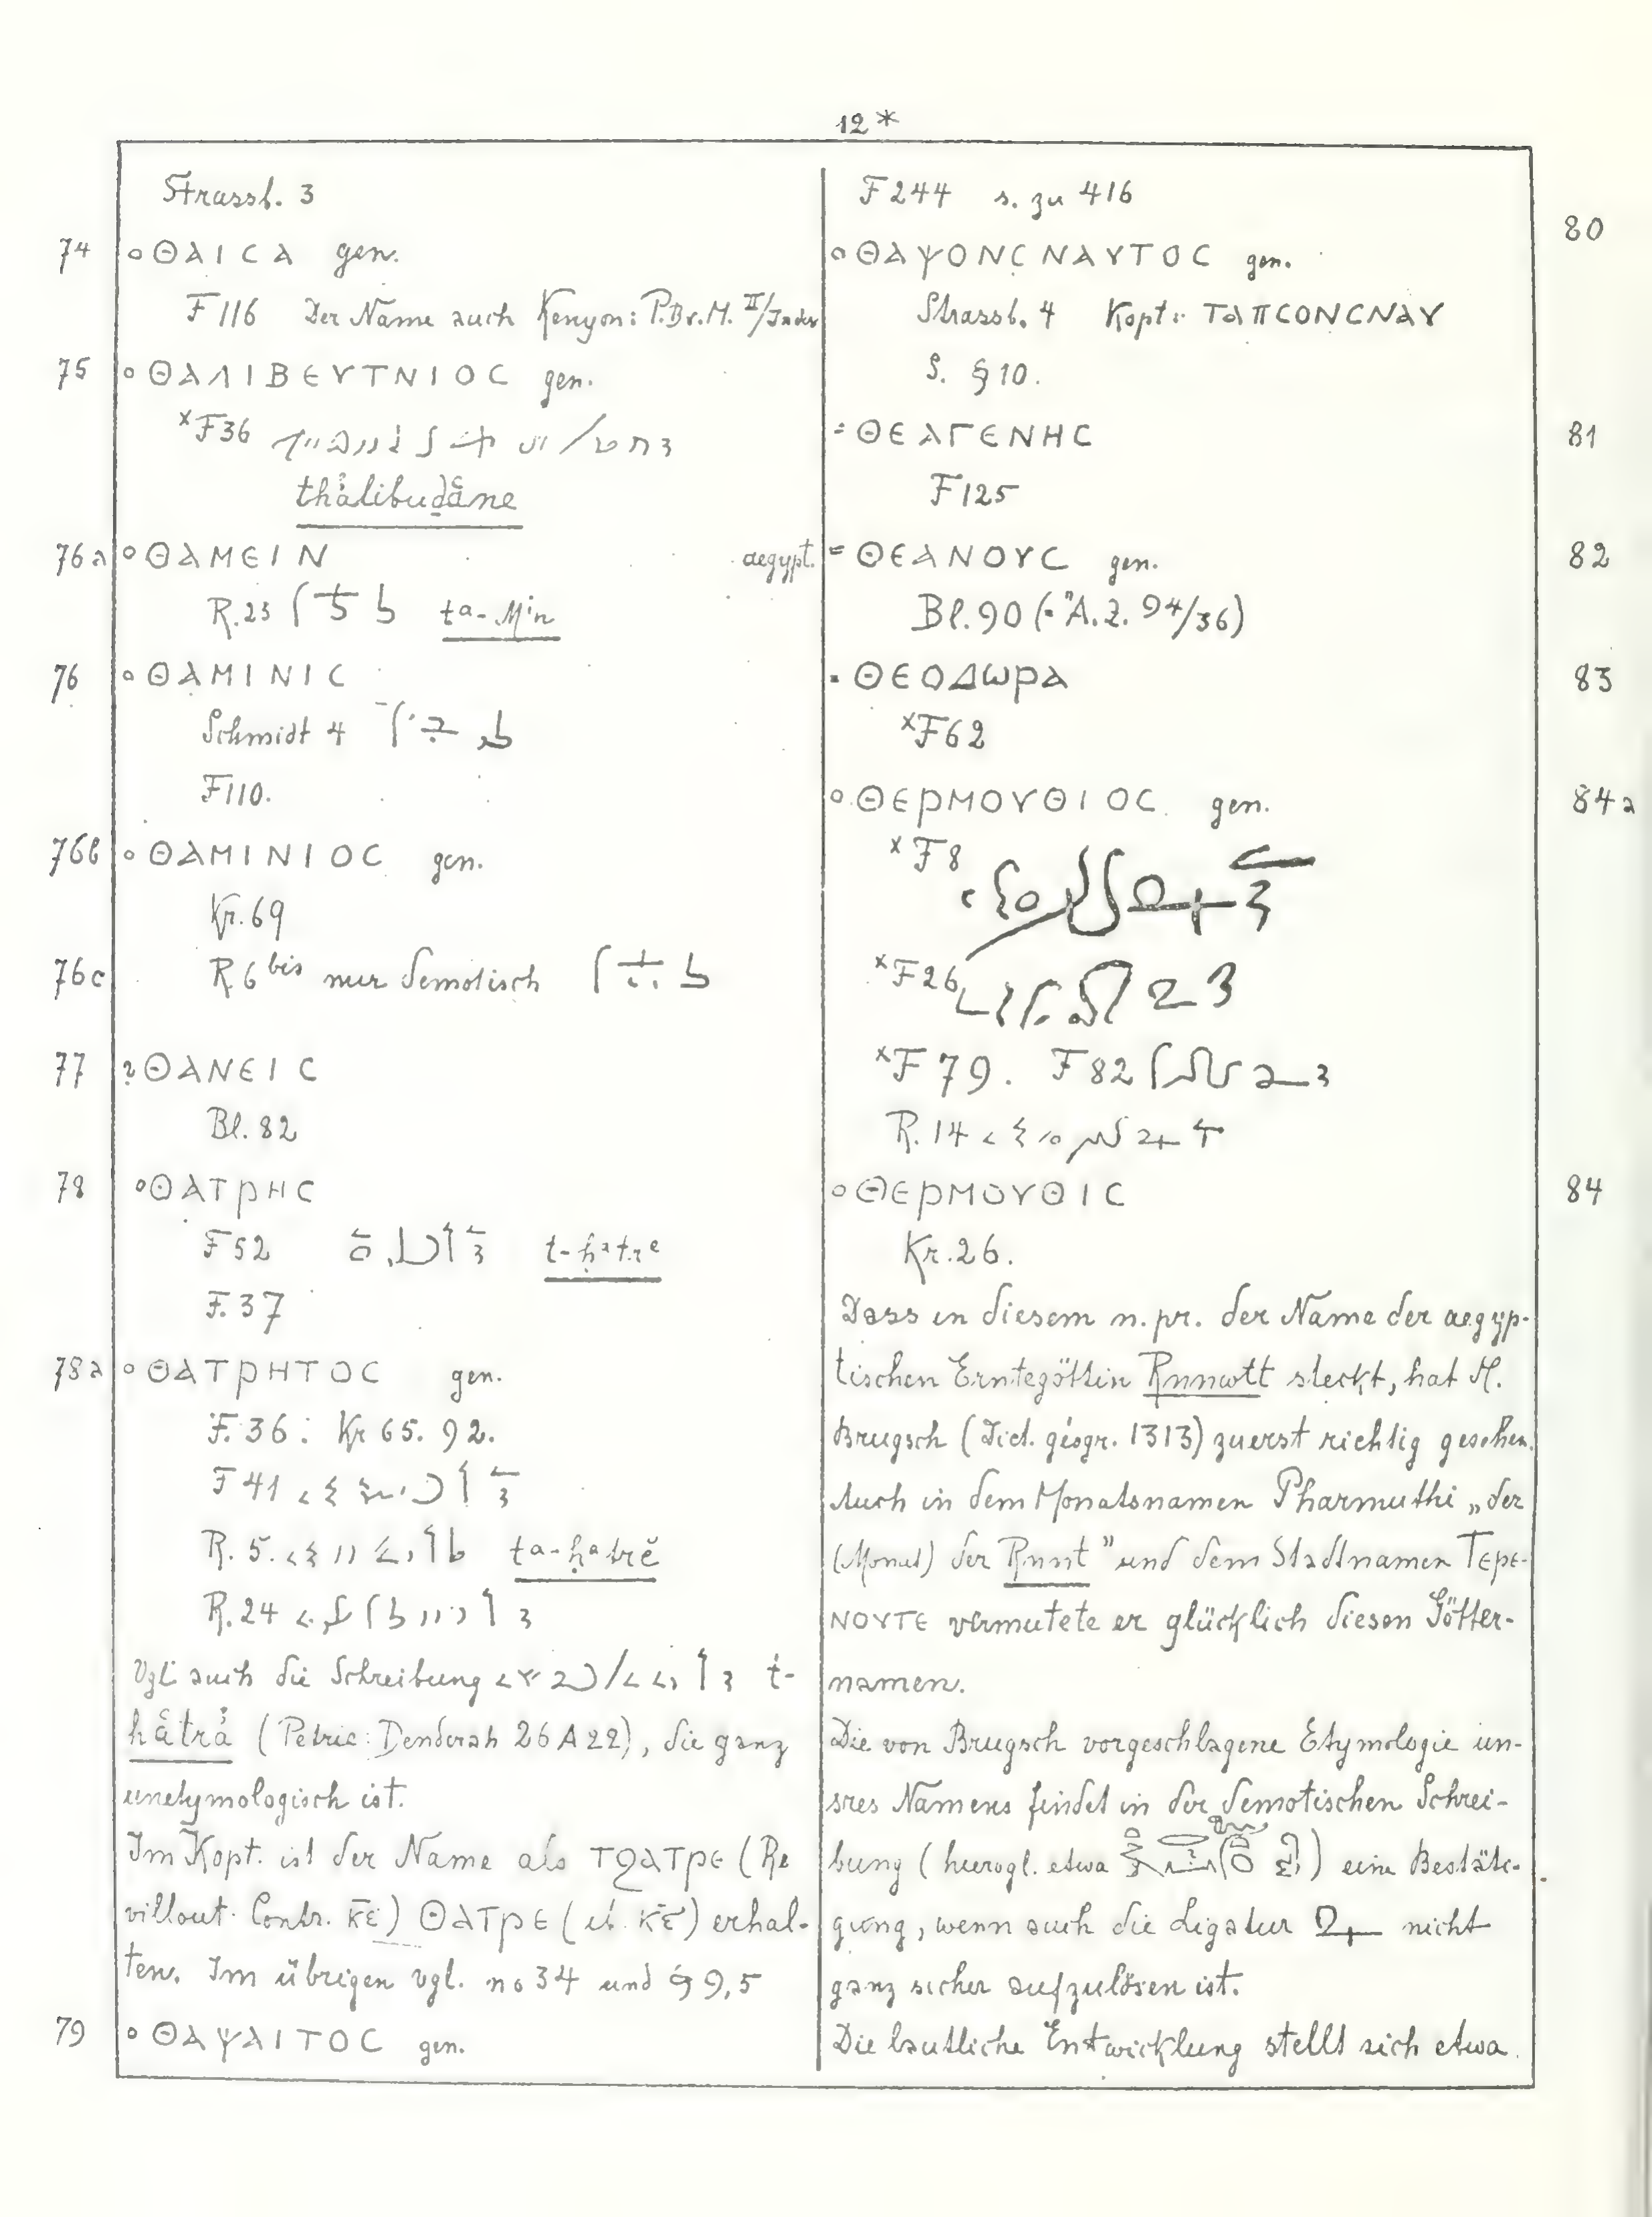 12*
Strassb. 3
74 °ΘΑΙCΑ gen.
F116 Der Name auch Kenyon: P.Br.M. II/Index
75 °ΘΑΛΙΒΕΥΤΝΙΟC gen.
×F36
thålibud̲åne
76a °ΘΑΜΕΙΝ
R.23 ta-Min
76 °ΘΑΜΙΝΙC
Schmidt 4
F110.
76b °ΘΑΜΙΝΙΟC gen.
Kr.69
76c R.6 bis nur demotisch
77 ?ΘΑΝΕΙC
Bl.82
78 °ΘΑΤΡΗC
F52 t-ḥatre
F.37
78a °ΘΑΤΡΗΤΟC gen.
F.36: Kr 65. 92.
F41
R.5. ta-ḥatrĕ
R.24
Vgl auch die Schreibung t-
håtrå (Petrie: Denderah 26A22), die ganz
unetymologisch ist.
Im Kopt. ist der Name als ΤϨΑΤΡΕ (Re
villout Contr. ΚΕ) ΘΑΤΡΕ (ib. ΚΕ) erhal-
ten. Im übrigen vgl. no 34 und § 9,5
79 °ΘΑΨΑΙΤΟC gen.
F244 s. zu 416
°ΘΑΨΟΝCΝΑΥΤΟC gen. 80
Strassb. 4 Kopt: ΤΑΠCΟΝCΝΑΥ
S. § 10.
=ΘΕΑΓΕΝΗC 81
F125
aegypt. =ΘΕΑΝΟΥC gen. 82
Bl.90 (= Ä.Z. 94/36)
·ΘΕΟΔΩΡΑ 83
×F62
°ΘΕΡΜΟΥΘΙΟC gen. 84a
×F8
×F26
×F79. F82
R.14
°ΘΕΡΜΟΥΘΙC 84
Kr.26.
Dass in diesem n.pr. der Name der aegyp-
tischen Erntegöttin Rnnwtt steckt, hat H.
Brugsch (Dict. géogr. 1313) zuerst richtig gesehen.
Auch in dem Monatsnamen Pharmuthi „der
(Monat) der Rnnt" und dem Stadtnamen ΤΕΡΕ-
ΝΟΥΤΕ vermutete er glücklich diesen Götter-
namen.
Die von Brugsch vorgeschlagene Etymologie un-
sres Namens findet in der demotischen Schrei-
bung (hierogl. etwa ) eine Bestäti-
gung, wenn auch die Ligatur nicht
ganz sicher aufzulösen ist.
Die lautliche Entwicklung stellt sich etwa